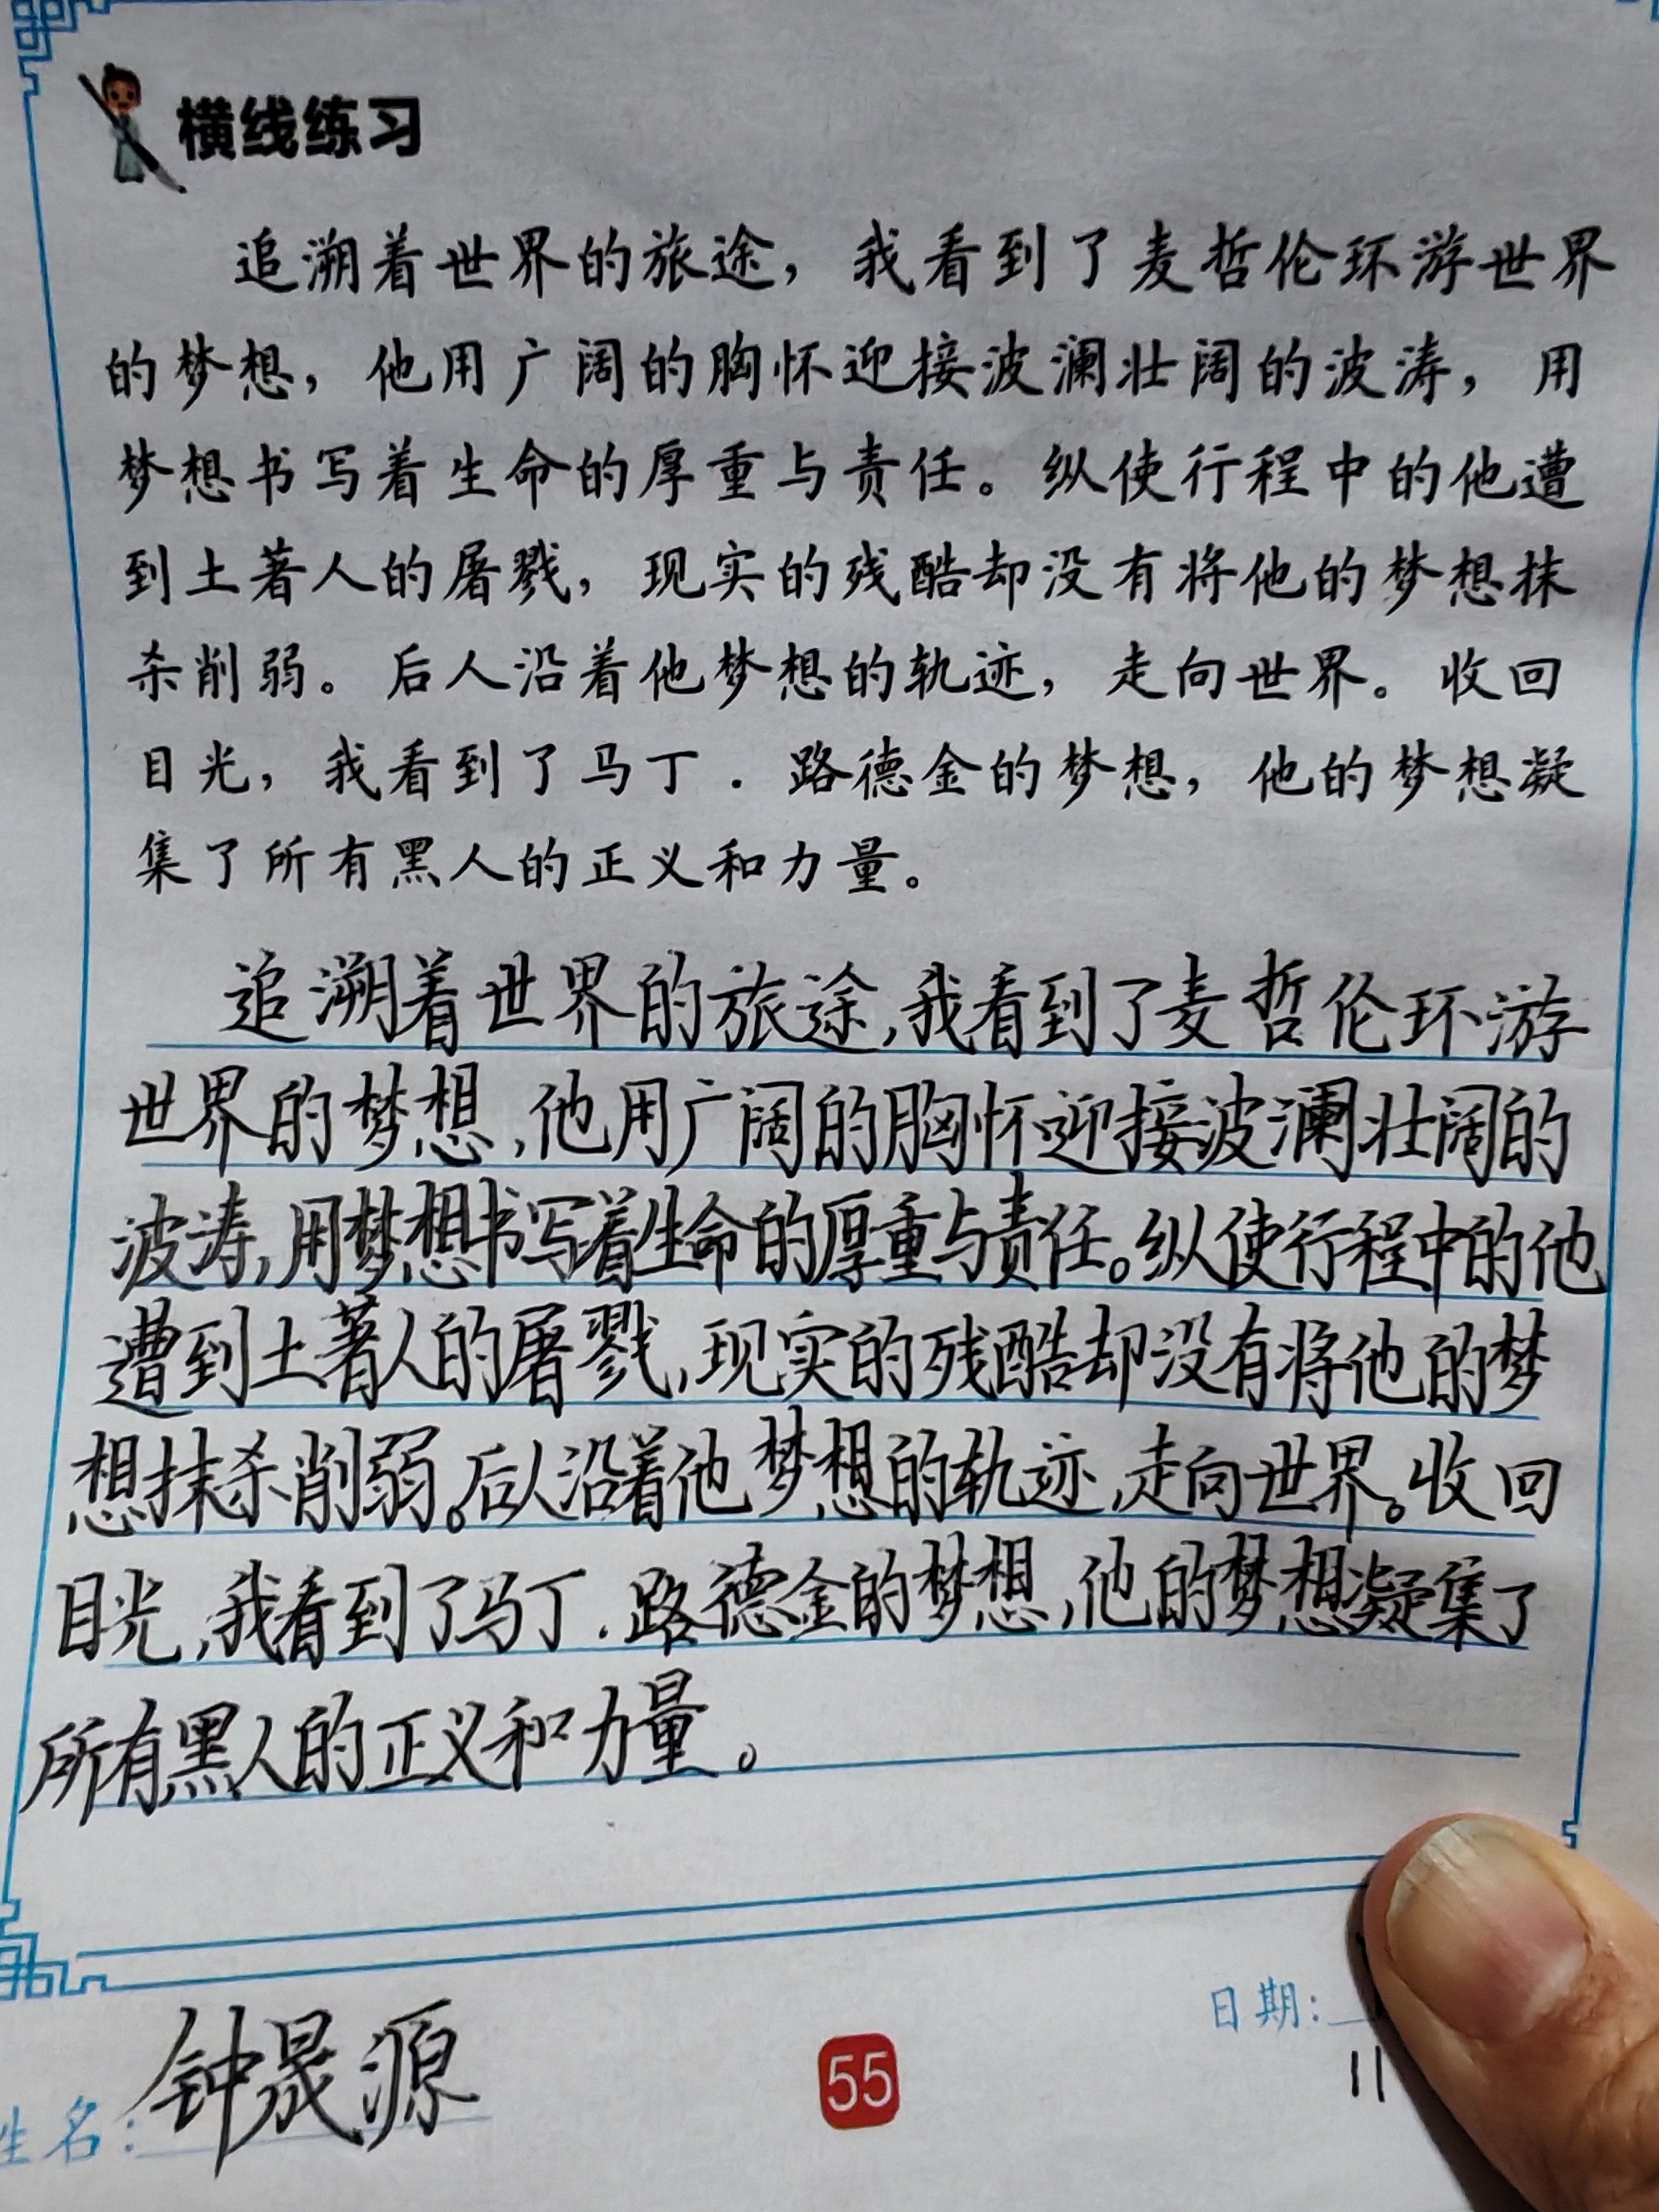 横线练习
追溯着世界的旅途，我看到了麦哲伦环游世界
的梦想，他用广阔的胸怀迎接波澜壮阔的波涛，用
梦想书写着生命的厚重与责任。纵使行程中的他遭
到土著人的屠戮，现实的残酷却没有将他的梦想抹
杀削弱。后人沿着他梦想的轨迹，走向世界。收回
目光，我看到了马丁．路德金的梦想，他的梦想凝
集了所有黑人的正义和力量。
追溯着世界的旅途,我看到了麦哲伦环游
世界的梦想,他用广阔的胸怀迎接波澜壮阔的
波涛,用梦想书写着生命的厚重与责任。纵使行程中的他
遭到土著人的屠戮,现实的残酷却没有将他的梦
想抹杀削弱。后人沿着他梦想的轨迹,走向世界。收回
目光,我看到了马丁.路德金的梦想,他的梦想凝集了
所有黑人的正义和力量。
日期:
11
姓名:钟晟源
55